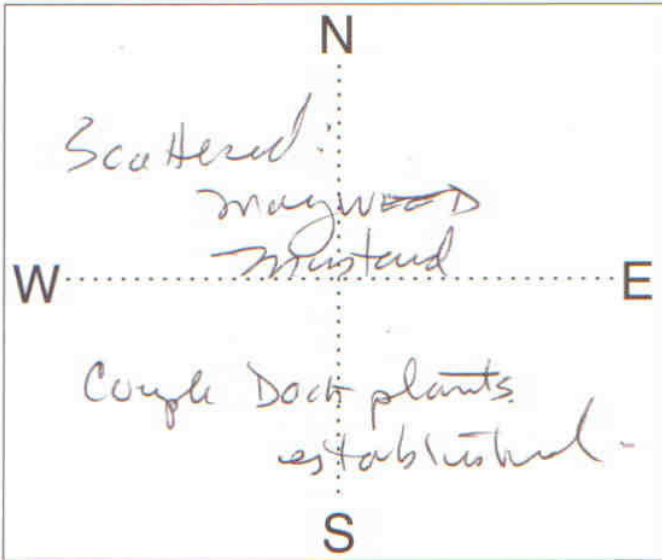 N
Scattered:
MayWEED
Mustard
W E
Couple Dock plants
established.
S